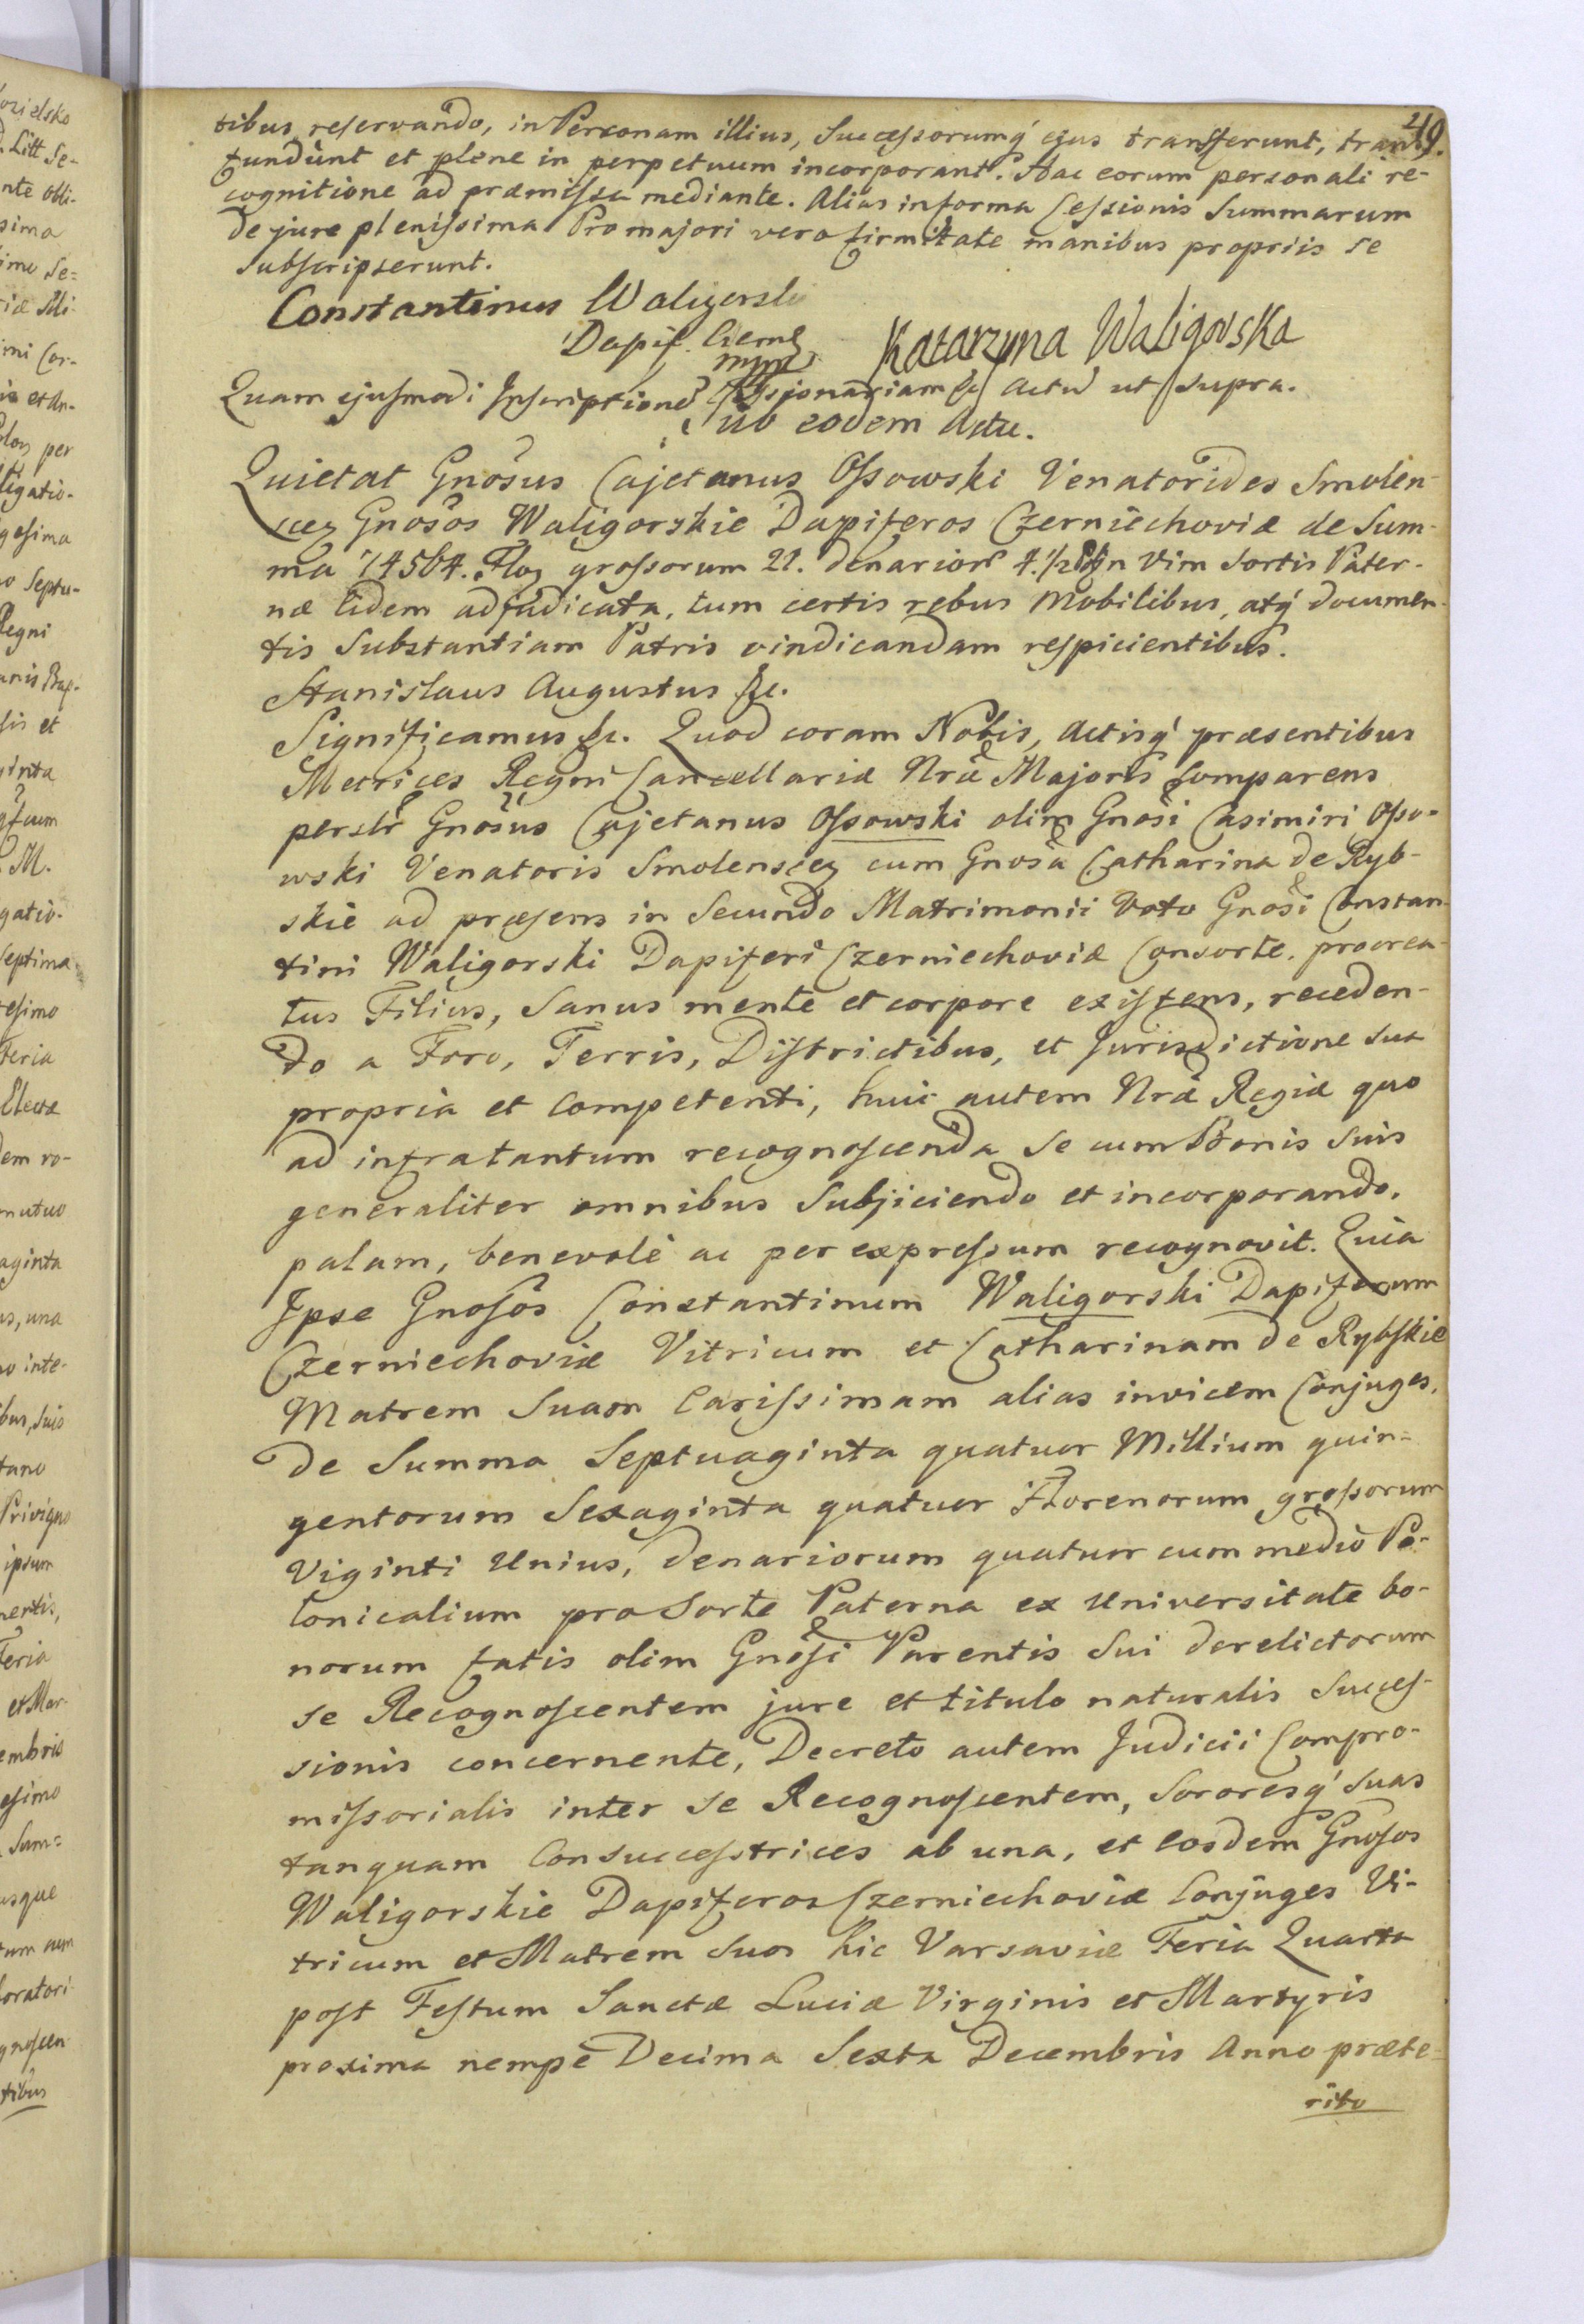 219.
tibus reservando, in Personam illius, Successorumq́ ejus transferunt, trans-
fundunt et plene in perpetuum incorporant. Hac eorum personali re-
cognitione ad præmissa mediante. Alias in forma Cessionis Summarum
de jure plenissima Pro majori vero firmitate manibus propriis se
subscripserunt.
Constantinus Waligorski
Dapif. Czerne
mpp
Katarzyna Waligorska
Quam ejusmodi Inscriptione Cessionariam &c Actu ut supra.
Sub eodem Actu.
Quietat Gnosus Cajetanus Ossowski Venatorides Smolen-
scen Gnosos Waligorskie Dapiferos Czerniechoviæ de Sum-
ma 74564. Flor grossorum 21. denarior 4. 1/2 in Vim Sortis Pater-
næ Eidem adjudicata, tum certis rebus Mobilibus, atq́ documen-
tis Substantiam Patris vindicandam respicientibus.
Stanislaus Augustus &c.
Significamus &c. Quod coram Nobis, Actisq́ præsentibus
Metrices Regni Cancellariæ Nræ Majoris Comparens
perslr Gnosus Cajetanus Ossowski olim Gnosi Casimiri Osso-
wski Venatoris Smolenscen cum Gnosa Catharina de Ryb-
skie ad præsens in Secundo Matrimonii Voto Gnosi Constan-
tini Waligorski Dapiferi Czerniechoviæ Consorte, procrea-
tus Filius, Sanus mente et corpore existens, receden-
do a Foro, Terris, Districtibus, et Jurisdictione sua
propria et competenti, huic autem Nræ Regiæ quo
ad infra tantum recognoscenda se cum Bonis suis
generaliter omnibus Subjiciendo et incorporando,
palam, benevole ac per expressum recognovit. Quia
Ipse Gnosos Constantinum Waligorski Dapiferum
Czerniechoviæ Vitricum et Catharinam de Rybskie
Matrem Suam Carissimam alias invicem Conjuges,
de Summa Septuaginta quatuor Millium quin-
gentorum Sexaginta quatuor Florenorum grossorum
Viginti Unius, denariorum quatuor cum medio Po-
lonicalium pro Sorte Paterna ex Universitate bo-
norum fatis olim Gnosi Parentis Sui derelictorum
se Recognoscentem jure et titulo naturalis Succes-
sionis concernente, Decreto autem Judicii Compro-
missorialis inter se Recognoscentem, Sororesq́ suas
tanquam Consuccesstrices ab una, et Eosdem Gnosos
Waligorskie Dapiferos Czerniechoviæ Conjuges Vi-
tricum et Matrem Suos hic Varsaviæ Feria Quarta
post Festum Sanctæ Luciæ Virginis et Martyris
proxima nempe Decima Sexta Decembris Anno præte-
rito